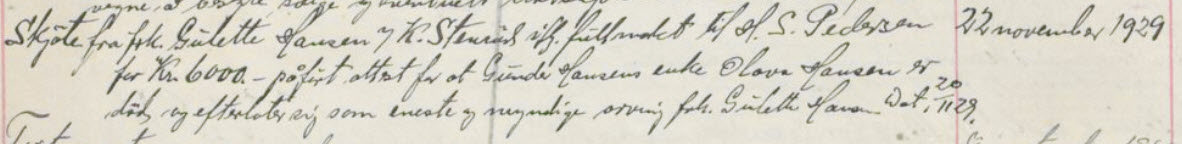 vegne å
Skjøte fra frk. Gulette Hansen v/ K. Stensrud ifg. fullmakt til H. S. Pedersen 22 november 1929
for Kr. 6000.- påført attest for at Gunder Hansens enke Olava Hansen er
død og efterlater sig som eneste og myndige arving frk. Gulette Hansen. Dat. 20/11 29.